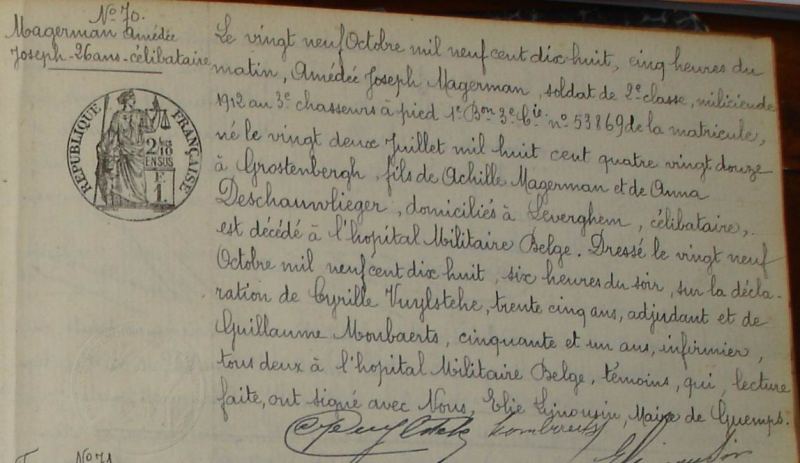 No 70.
Magerman Amédée
Joseph - 26 ans - célibataire
RÉPUBLIQUE FRANÇAISE
2/10 EN SUS
F
1.
Le vingt neuf Octobre mil neuf cent dix-huit, cinq heures du
matin, Amédée Joseph Magerman, soldat de 2e classe, milicien de
1912 au 3e chasseurs à pied 1e Bon 3e Cie no 53869 de la matricule,
né le vingt deux Juillet mil huit cent quatre vingt douze
à Grostenbergh, fils de Achille Magerman et de Anna
Deschauwlieger, domiciliés à Leverghem, célibataire,
est décédé à l'hôpital Militaire Belge. Dressé le vingt neuf
Octobre mil neuf cent dix huit, six heures du soir, sur la décla-
ration de Cyrille Vuylstehe, trente cinq ans, adjudant et de
Guillaume Monbaerts, cinquante et un ans, infirmier,
tous deux à l'hôpital Militaire Belge, témoins, qui, lecture
faite, ont signé avec Nous, Elie Limousin, Maire de Guemps.
No 71